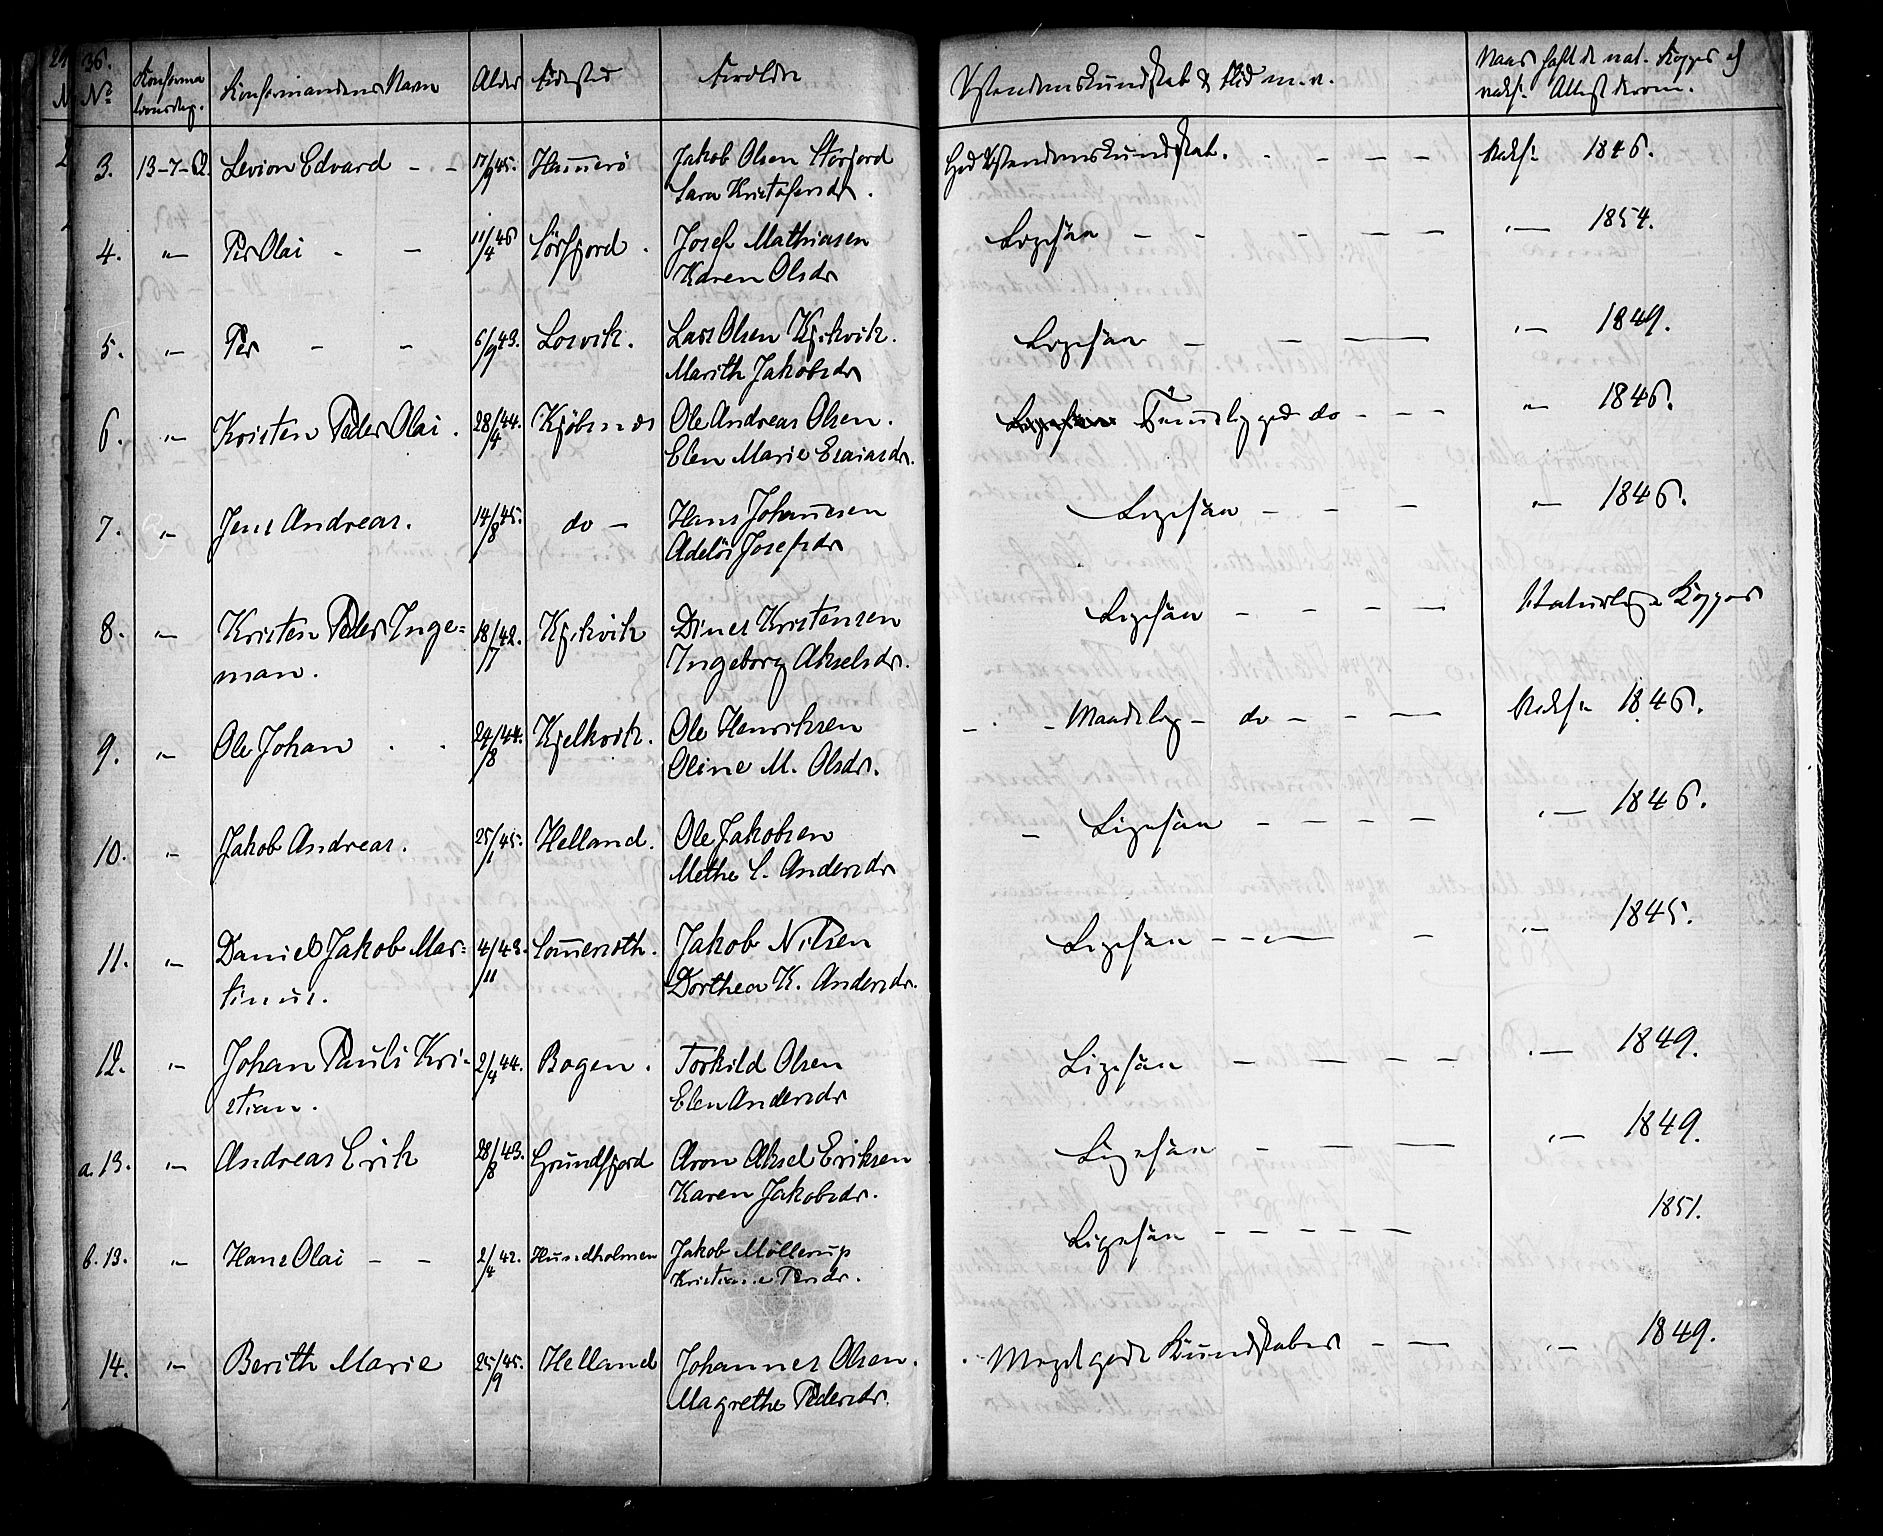 36.
No Konfirma Konfirmandens Navn Alder Födested Foreldre Kristendomskundskab & Flid m.v. Naar havt de nat. Kopper el
tionsdag. vaks. Attest derom.
3. 13-7-62. Levion Edvard - - 17/9 45. Hammerö Jakob Olsen Storfjord God Kristendomskundskab. - - - - Vaks. 1846.
Sara Kristofersdr.
4. " Per Olai - - 11/4 46 Sörfjord. Josef Mathiasen Ligesaa - - - - - " 1854.
Karen Olsdr
5. " Per - - 6/9 43. Losvik. Lars Olsen Kjikvik. Ligesaa - - — " 1849.
Marith Jakobsdr
6. " Kristen Peder Olai. 28/4 44. Kjöbsnæs Ole Andreas Olsen. Ligesaa Temmelig god do - - - " 1846.
Elen Marie Esaiasdr.
7. " Jens Andreas. 14/8 45. do - Hans Johannesen Ligesaa - - - " 1846.
Adelös Josefsdr
8. " Kristen Peder Inge- 18/7 42. Kjikvik Dines Kristensen Ligesaa - - - - Naturlige Kopper
man. Ingeborg Akselsdr.
9. " Ole Johan 24/8 44. Kjelkvik. Ole Henriksen - - Maadelig - do - - — Vaks. 1846.
Oline M. Olsdr.
10. " Jakob Andreas. 25/1 45. Helland. Ole Jakobsen - Ligesaa - - - - " 1846.
Methe C. Andersdr
11. " Daniel Jakob Mar- 4/11 43. Sommerseth. Jakob Nilsen Ligesaa - - - - " 1845.
tinus. Dorthea K. Andersdr.
12. " Johan Pauli Kri- 2/4 44. Bogen. Torkild Olsen Ligesaa - - - - " 1849.
stian. Elen Andersdr
a.13. " Andreas Erik 28/8 43. Grundfjord Aron Aksel Eriksen Ligesaa - - — " 1849.
Karen Jakobsdr.
b.13. " Hans Olai - - 2/4 42. Hundholmen Jakob Möllerup Ligesaa - - - - - 1851.
Kristiane Persdr.
14. " Berith Marie 25/9 45. Helland Johannes Olsen. Meget gode Kundskaber - — " 1849.
Magrethe Pedersdr.